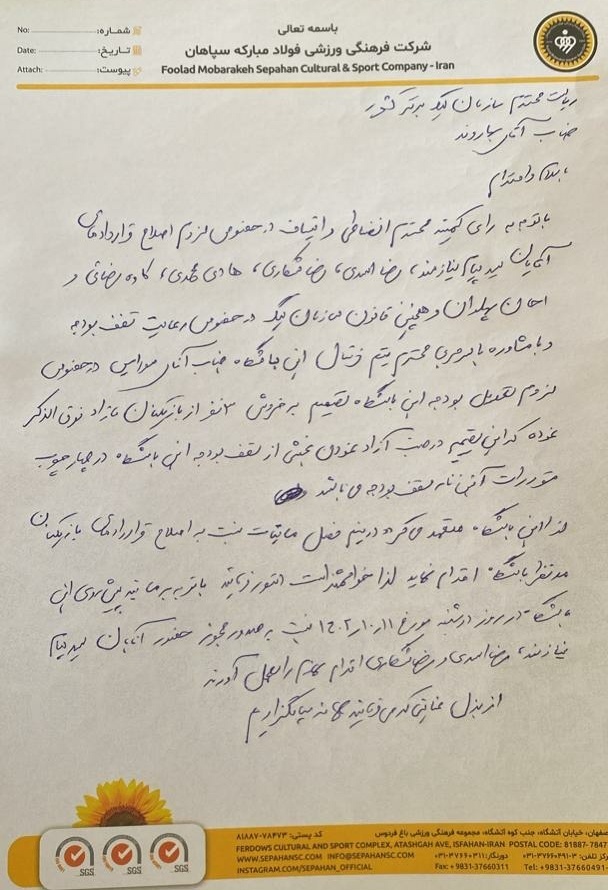 باسمه تعالی
شرکت فرهنگی ورزشی فولاد مبارکه سپاهان
Foolad Mobarakeh Sepahan Cultural & Sport Company - Iran
No: شماره:
Date: تاریخ:
Attach: پیوست:
ریاست محترم سازمان لیگ برتر کشور
جناب آقای بهاروند
با سلام و احترام
با توجه به رای کمیته محترم انضباطی و استیناف در خصوص لزوم اصلاح قراردادهای
آقایان پیام نیازمند، رضا اسدی، رضا شکاری، هادی محمدی، کاوه رضائی و
احسان پهلوان و همچنین قانون سازمان لیگ در خصوص رعایت سقف بودجه
و با مشاوره با سرمربی محترم تیم فوتبال این باشگاه جناب آقای مورایس در خصوص
لزوم تعدیل بودجه این باشگاه تصمیم به فروش ۳ نفر از بازیکنان مازاد فوق الذکر
نموده که این تصمیم در جهت آزاد نمودن بخشی از سقف بودجه این باشگاه در چهارچوب
مقررات آئین نامه سقف بودجه می باشد
لذا این باشگاه متعهد می گردد در نیم فصل مابقی نسبت به اصلاح قراردادهای بازیکنان
مدنظر باشگاه اقدام نماید لذا خواهشمند است دستور فرمائید با توجه به برنامه پیش روی این
باشگاه در روز دوشنبه مورخ ۱۴۰۲/۱۰/۱۱ نسبت به صدور مجوز حضور آقایان پیام
نیازمند، رضا اسدی و رضا شکاری اقدام لازم را بعمل آورند
از بذل عنایتی که می فرمائید صمیمانه سپاسگزاریم
SGS SGS SGS
اصفهان، خیابان آتشگاه، جنب کوه آتشگاه، مجموعه فرهنگی ورزشی باغ فردوس کد پستی: ۷۸۴۷۳-۸۱۸۸۷
FERDOWS CULTURAL AND SPORT COMPLEX, ATASHGAH AVE, ISFAHAN-IRAN POSTAL CODE: 81887-7847
WWW.SEPAHANSC.COM INFO@SEPAHANSC.COM دورنگار: ۰۳۱-۳۷۶۶۰۳۱۱ مرکز تلفن: ۰۳۱-۳۷۶۶۰۴۹۱-۳
INSTAGRAM.COM/SEPAHAN_OFFICIAL Fax: +9831-37660311 Tel: +9831-37660491